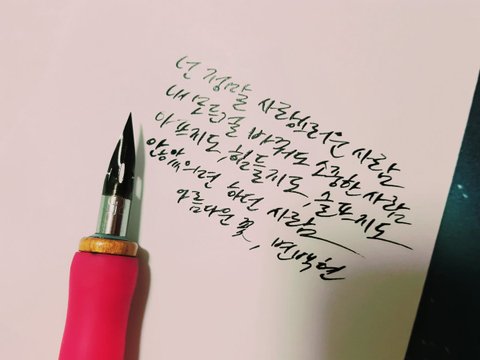 넌 정말 사랑스러운 사람
내 모든걸 바쳐도 소중한 사람
아프지도, 힘들지도, 슬프지도
않았으면 하던 사람
아름다운 꽃, 변백현